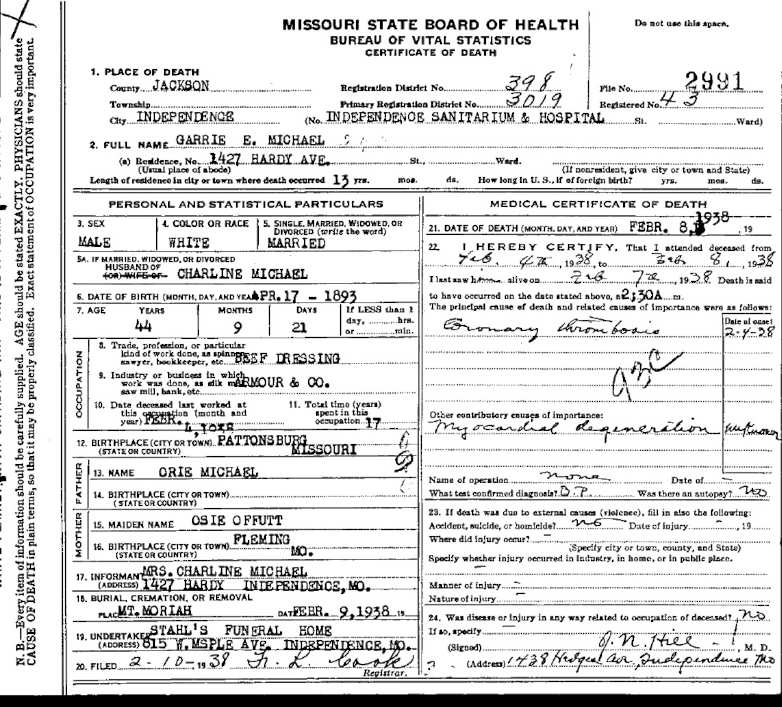 MISSOURI STATE BOARD OF HEALTH
BUREAU OF VITAL STATISTICS
CERTIFICATE OF DEATH
Do not use this space.
N. B.—Every item of information should be carefully supplied. AGE should be stated EXACTLY. PHYSICIANS should state
CAUSE OF DEATH in plain terms, so that it may be properly classified. Exact statement of OCCUPATION is very important.
1. PLACE OF DEATH
County JACKSON Registration District No. 398 File No. 2991
Township Primary Registration District No. 3019 Registered No. 43
City INDEPENDENCE (No. INDEPENDENCE SANITARIUM & HOSPITAL St. Ward)
2. FULL NAME GARRIE E. MICHAEL
(a) Residence, No. 1427 HARDY AVE. St., Ward.
(Usual place of abode) (If nonresident, give city or town and State)
Length of residence in city or town where death occurred 13 yrs. mos. ds. How long in U. S., if of foreign birth? yrs. mos. ds.
PERSONAL AND STATISTICAL PARTICULARS
3. SEX 4. COLOR OR RACE 5. SINGLE, MARRIED, WIDOWED, OR
DIVORCED (write the word)
MALE WHITE MARRIED
5A. IF MARRIED, WIDOWED, OR DIVORCED
HUSBAND OF
(OR) WIFE OF CHARLINE MICHAEL
6. DATE OF BIRTH (MONTH, DAY, AND YEAR) APR. 17 - 1893
7. AGE YEARS MONTHS DAYS If LESS than 1
day, hrs.
44 9 21 or min.
OCCUPATION
8. Trade, profession, or particular
kind of work done, as spinner,
sawyer, bookkeeper, etc. BEEF DRESSING
9. Industry or business in which
work was done, as silk mill,
saw mill, bank, etc. ARMOUR & CO.
10. Date deceased last worked at
this occupation (month and
year) FEBR. 4 1938
11. Total time (years)
spent in this
occupation 17
12. BIRTHPLACE (CITY OR TOWN) PATTONSBURG
(STATE OR COUNTRY) MISSOURI
FATHER
13. NAME ORIE MICHAEL
14. BIRTHPLACE (CITY OR TOWN)
(STATE OR COUNTRY)
MOTHER
15. MAIDEN NAME OSIE OFFUTT
16. BIRTHPLACE (CITY OR TOWN) FLEMING
(STATE OR COUNTRY) MO.
17. INFORMANT MRS. CHARLINE MICHAEL
(ADDRESS) 1427 HARDY INDEPENDENCE, MO.
18. BURIAL, CREMATION, OR REMOVAL
PLACE MT. MORIAH DATE FEBR. 9, 1938 19
19. UNDERTAKER STAHL'S FUNERAL HOME
(ADDRESS) 815 W. MSPLE AVE. INDEPENDENCE, MO.
20. FILED 2-10-1938 F. L. Cook
Registrar.
MEDICAL CERTIFICATE OF DEATH
21. DATE OF DEATH (MONTH, DAY, AND YEAR) FEBR. 8, 1938, 19
22. I HEREBY CERTIFY, That I attended deceased from
Feb. 4th, 1938, to Feb 8, 1938
I last saw him alive on Feb 7th, 1938 Death is said
to have occurred on the date stated above, at 2;30A m.
The principal cause of death and related causes of importance were as follows:
Date of onset
Coronary thrombosis 2-4-38
Other contributory causes of importance:
Myocardial degeneration unknown
Name of operation none Date of -
What test confirmed diagnosis? Was there an autopsy? no
23. If death was due to external causes (violence), fill in also the following:
Accident, suicide, or homicide? no Date of injury , 19
Where did injury occur? -
(Specify city or town, county, and State)
Specify whether injury occurred in industry, in home, or in public place.
Manner of injury -
Nature of injury -
24. Was disease or injury in any way related to occupation of deceased? no
If so, specify
(Signed) J. N. Hill, M. D.
(Address) 1438 Hedges Av, Independence Mo